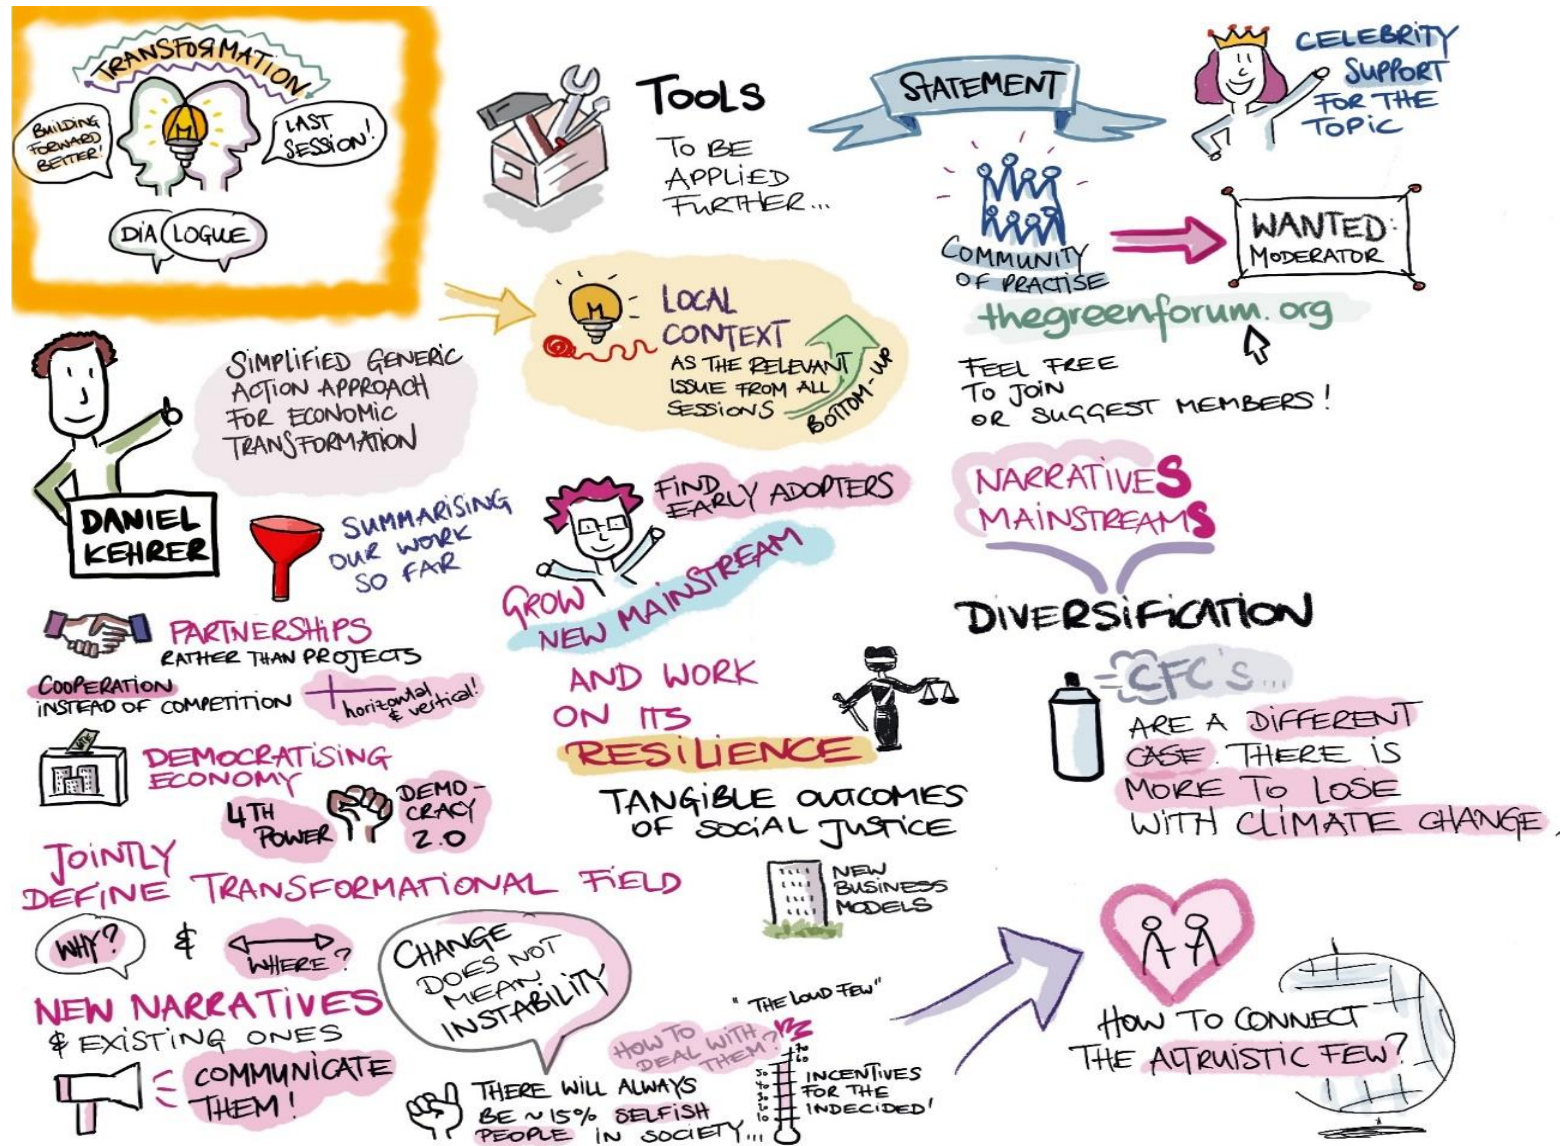 TRANSFORMATION
BUILDING
FORWARD
BETTER!
LAST
SESSION!
DIALOGUE
TOOLS
TO BE
APPLIED
FURTHER...
STATEMENT
CELEBRITY
SUPPORT
FOR THE
TOPIC
COMMUNITY
OF PRACTISE
WANTED:
MODERATOR
thegreenforum.org
FEEL FREE
TO JOIN
OR SUGGEST MEMBERS!
LOCAL
CONTEXT
AS THE RELEVANT
ISSUE FROM ALL
SESSIONS
BOTTOM-UP
SIMPLIFIED GENERIC
ACTION APPROACH
FOR ECONOMIC
TRANSFORMATION
DANIEL
KEHRER
SUMMARISING
OUR WORK
SO FAR
FIND
EARLY ADOPTERS
GROW
NEW MAINSTREAM
AND WORK
ON ITS
RESILIENCE
TANGIBLE OUTCOMES
OF SOCIAL JUSTICE
NARRATIVES
MAINSTREAMS
DIVERSIFICATION
CFC'S...
ARE A DIFFERENT
CASE. THERE IS
MORE TO LOSE
WITH CLIMATE CHANGE.
PARTNERSHIPS
RATHER THAN PROJECTS
COOPERATION
INSTEAD OF COMPETITION
horizontal
& vertical!
DEMOCRATISING
ECONOMY
4TH
POWER
DEMO-
CRACY
2.0
JOINTLY
DEFINE TRANSFORMATIONAL FIELD
WHY?
&
WHERE?
NEW NARRATIVES
& EXISTING ONES
COMMUNICATE
THEM!
CHANGE
DOES NOT
MEAN
INSTABILITY
NEW
BUSINESS
MODELS
"THE LOUD FEW"
HOW TO
DEAL WITH
THEM?
THERE WILL ALWAYS
BE ~15% SELFISH
PEOPLE IN SOCIETY...
70
60
50
40
30
20
10
INCENTIVES
FOR THE
INDECIDED!
HOW TO CONNECT
THE ALTRUISTIC FEW?